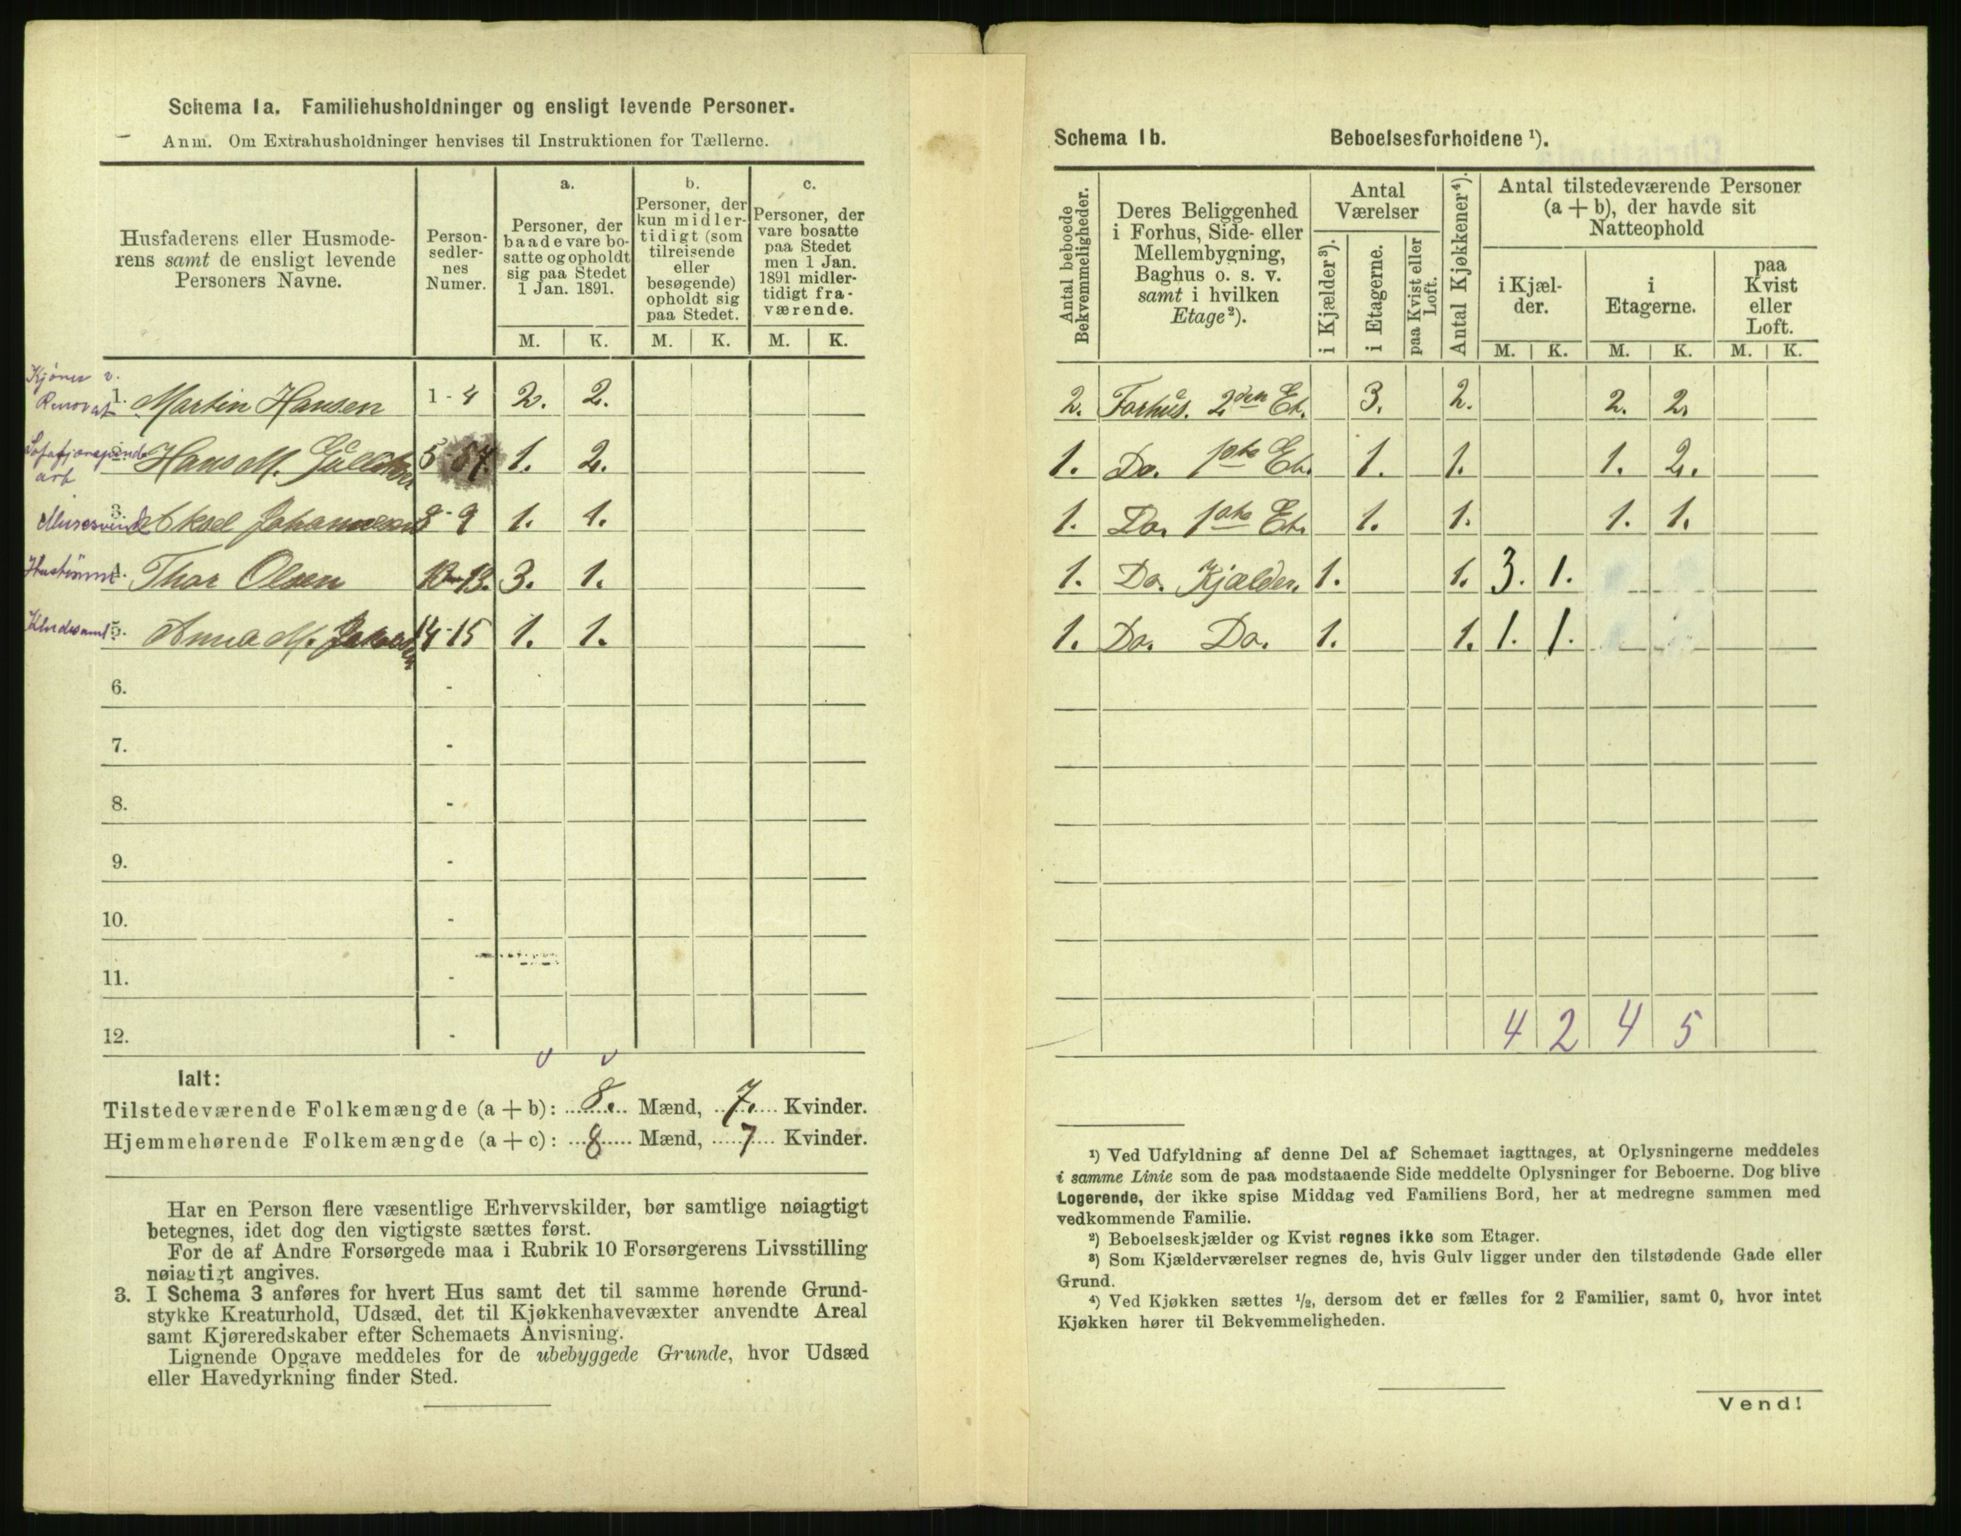 Schema 1a. Familiehusholdninger og ensligt levende Personer.
Anm. Om Extrahusholdninger henvises til Instruktionen for Tællerne.
Husfaderens eller Husmode-
rens samt de ensligt levende
Personers Navne.
Person-
sedler-
nes
Numer.
a.
Personer, der
baade vare bo-
satte og opholdt
sig paa Stedet
1 Jan. 1891.
b.
Personer, der
kun midler-
tidigt (som
tilreisende
eller
besøgende)
opholdt sig
paa Stedet.
c.
Personer, der
vare bosatte
paa Stedet
men 1 Jan.
1891 midler-
tidigt fra-
værende.
M. K. M. K. M. K.
1. Martin Hansen 1-4 2. 2.
Hans M. 5 1. 2.
3. Aksel Johannesen 8-9 1. 1.
4. Thor Olsen 10-13. 3. 1.
5. Anna M. 14-15 1. 1.
6. -
7. -
8. -
9. -
10. -
11. -
12. -
Ialt:
Tilstedeværende Folkemængde (a + b): 8. Mænd, 7. Kvinder.
Hjemmehørende Folkemængde (a + c): 8 Mænd, 7 Kvinder.
Har en Person flere væsentlige Erhvervskilder, bør samtlige nøiagtigt
betegnes, idet dog den vigtigste sættes først.
For de af Andre Forsørgede maa i Rubrik 10 Forsørgerens Livsstilling
nøiagtigt angives.
3. I Schema 3 anføres for hvert Hus samt det til samme hørende Grund-
stykke Kreaturhold, Udsæd, det til Kjøkkenhavevæxter anvendte Areal
samt Kjøreredskaber efter Schemaets Anvisning.
Lignende Opgave meddeles for de ubebyggede Grunde, hvor Udsæd
eller Havedyrkning finder Sted.
Schema 1b. Beboelsesforholdene ¹).
Antal beboede
Bekvemmeligheder.
Deres Beliggenhed
i Forhus, Side- eller
Mellembygning,
Baghus o. s. v.
samt i hvilken
Etage²).
Antal
Værelser
i Kjælder³).
i Etagerne.
paa Kvist eller
Loft.
Antal Kjøkkener⁴).
Antal tilstedeværende Personer
(a + b), der havde sit
Natteophold
i Kjæl-
der.
i
Etagerne.
paa
Kvist
eller
Loft.
M. K. M. K. M. K.
2. Forhus. 2den Et. 3. 2. 2. 2.
1. Do. 1ste Et. 1. 1. 1. 2.
1. Do. 1ste Et. 1. 1. 1. 1.
1. Do. Kjælder. 1. 1. 3. 1.
1. Do. Do. 1. 1. 1. 1.
4 2 4 5
¹) Ved Udfyldning af denne Del af Schemaet iagttages, at Oplysningerne meddeles
i samme Linie som de paa modstaaende Side meddelte Oplysninger for Beboerne. Dog blive
Logerende, der ikke spise Middag ved Familiens Bord, her at medregne sammen med
vedkommende Familie.
²) Beboelseskjælder og Kvist regnes ikke som Etager.
³) Som Kjælderværelser regnes de, hvis Gulv ligger under den tilstødende Gade eller
Grund.
⁴) Ved Kjøkken sættes ½, dersom det er fælles for 2 Familier, samt 0, hvor intet
Kjøkken hører til Bekvemmeligheden.
Vend!